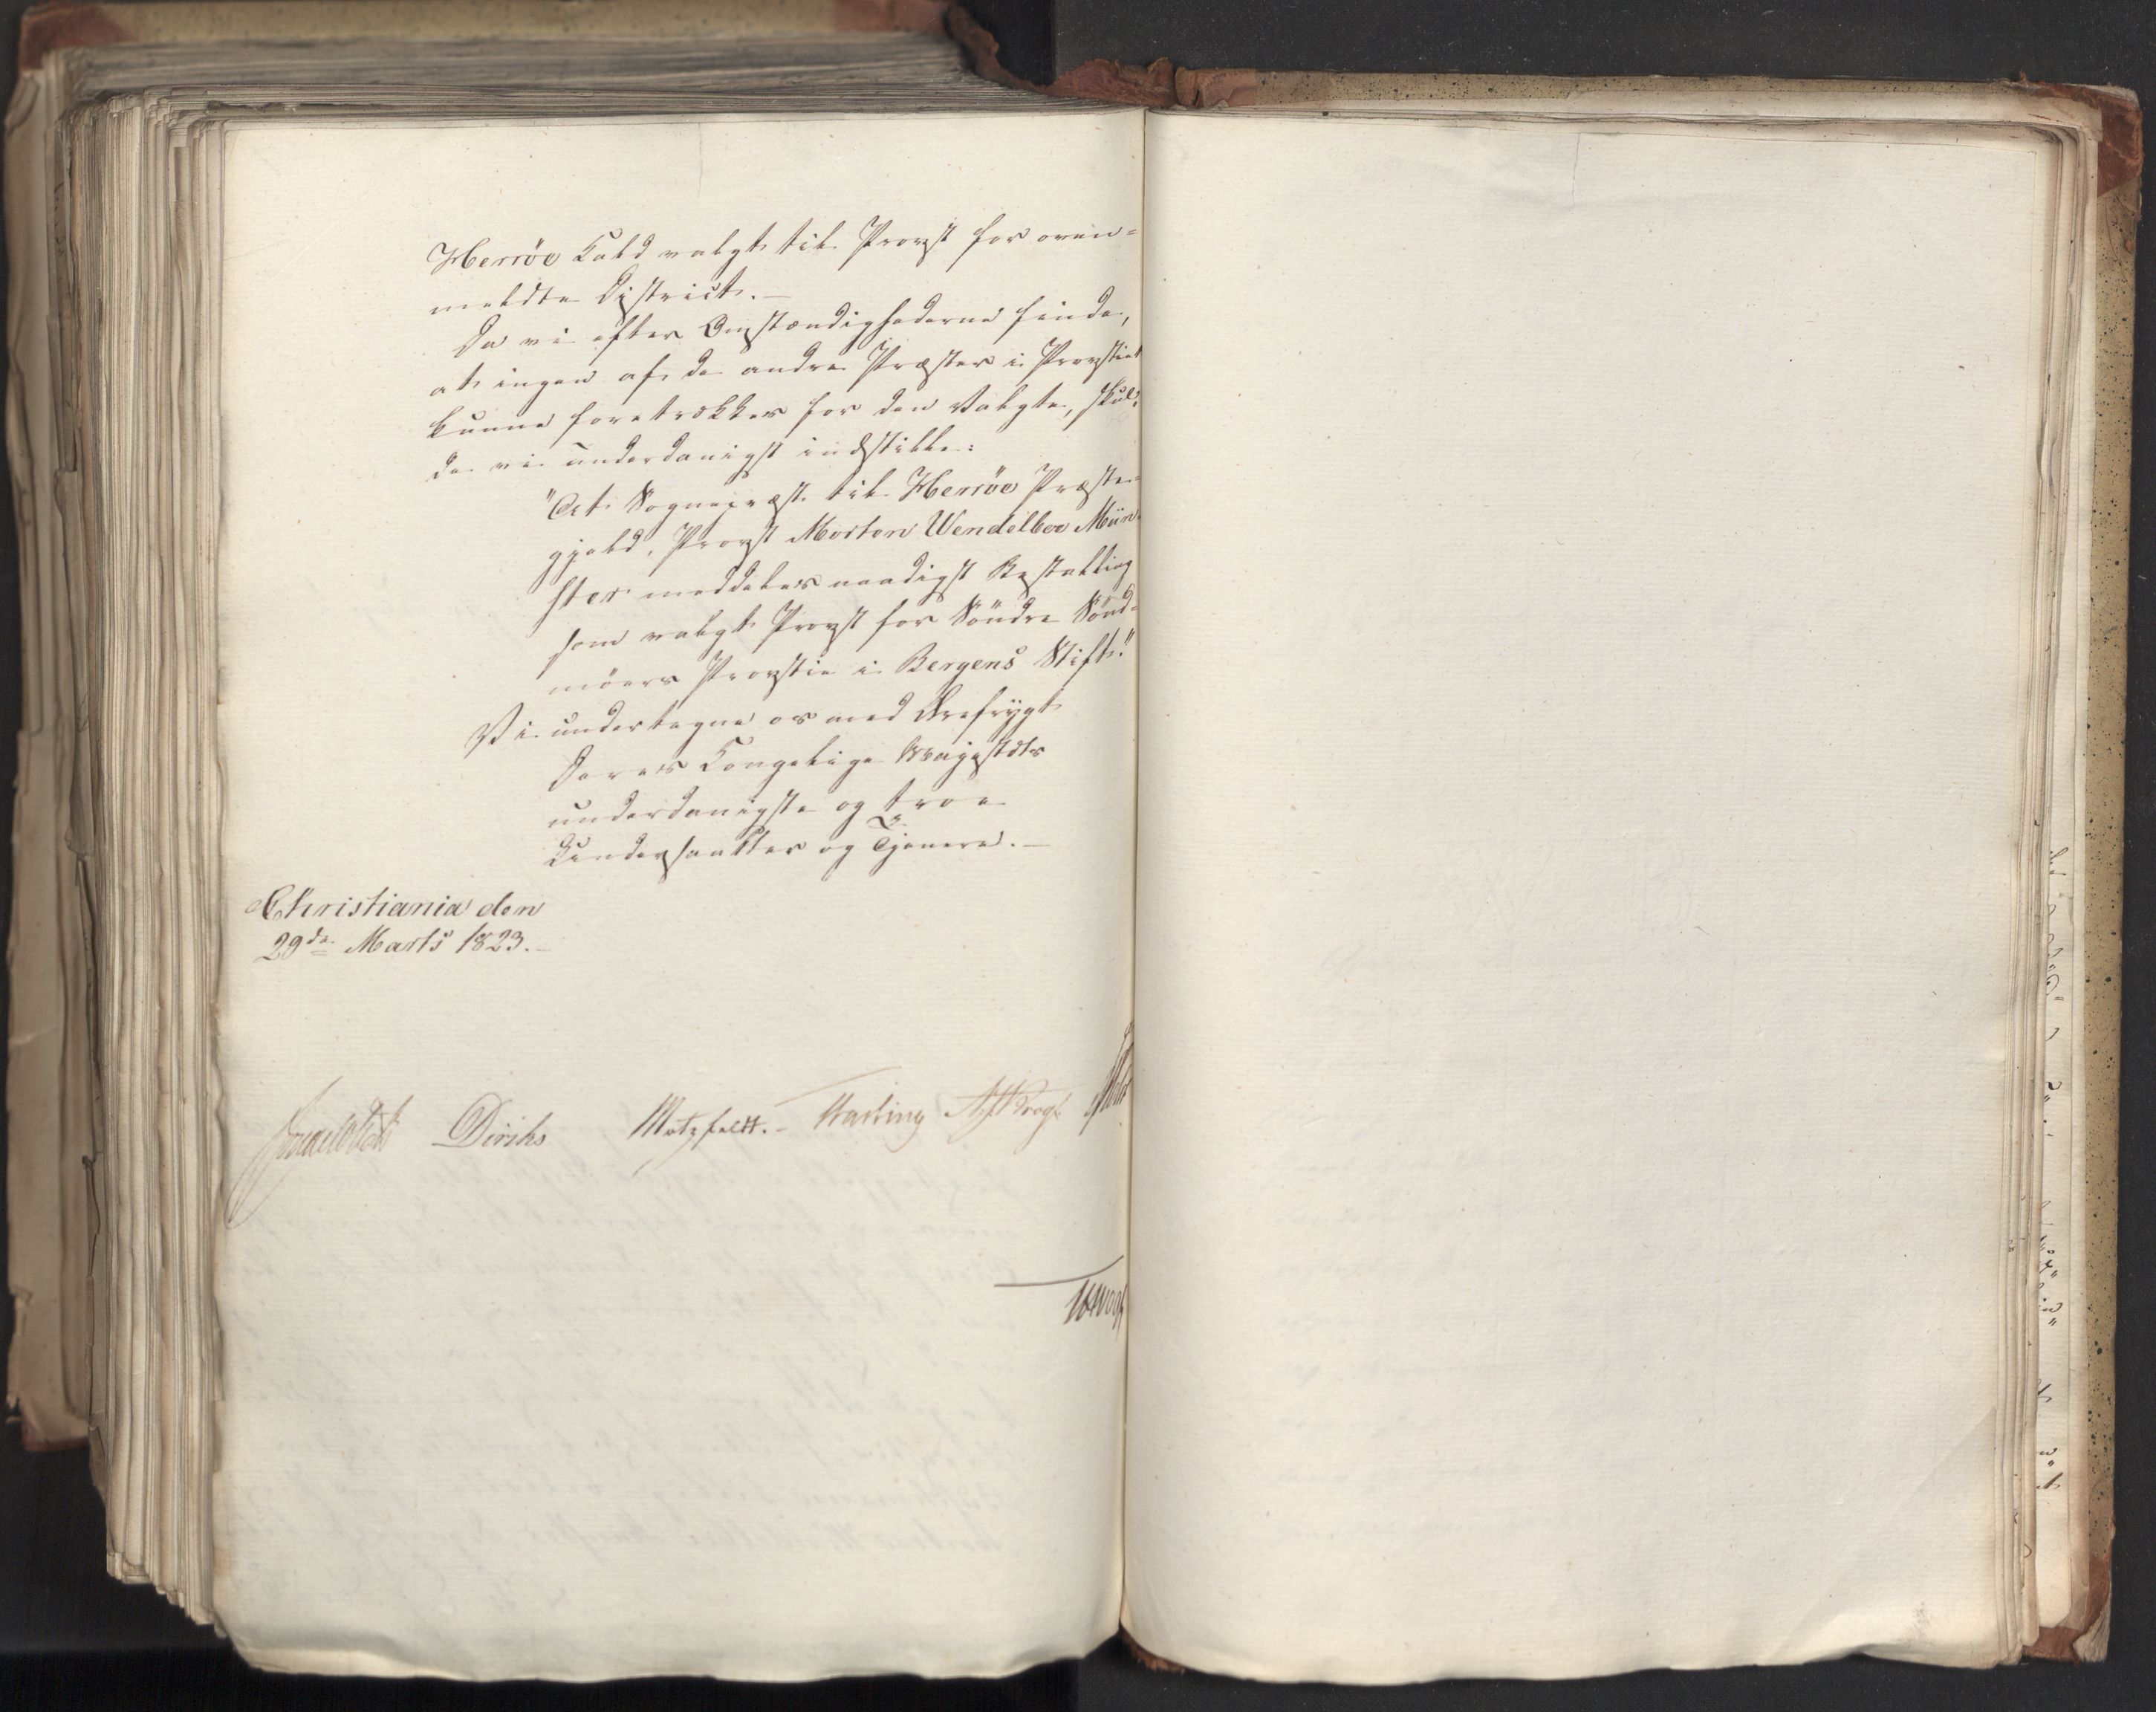 Herröe Kald valgt til Provst for oven=
meldte District.—
Da vi efter Omstændighederne finde,
at ingen af de andre Præster i Provstiet
kunne foretrækkes for den Valgte, skul=
de vi underdanigst indstille:
"At Sognepræst til Herröe Præste=
gjeld, Provst Morten Wendelboe Mün=
ster meddeles naadigst Bestalling
som valgt Provst for Söndre Sönd=
möers Provstie i Bergens Stift."
Vi undertegne os med Ærefrygt
Deres Kongelige Majestæts
underdanigste og troe
Undersaatter og Tjenere.—
Christiania den
29de Marts 1823.—
Diriks Motzfeldt.- Harting